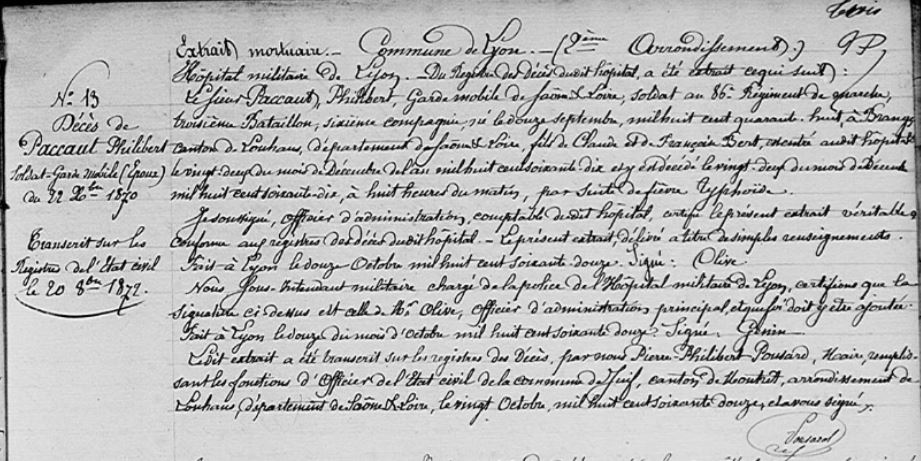 trois
Extrait mortuaire. — Commune de Lyon. — (2ème Arrondissement.)
Hôpital militaire de Lyon. — Du Registre des décès dudit hôpital, a été extrait ce qui suit :
Le sieur Paccaut, Philibert, Garde mobile de Saône & Loire, soldat au 86e Régiment de marche,
troisième Bataillon, sixième compagnie, né le douze septembre, mil huit cent quarante huit, à Brange
canton de Louhans, département de Saône & Loire, fils de Claude et de Français Bert, est entré audit hôpital
le vingt-deux du mois de Décembre de l'an mil huit cent soixante-dix et y est décédé le vingt-deux du mois de Décembre
mil huit cent soixante-dix, à huit heures du matin, par suite de fièvre typhoïde.
Je soussigné, officier d'administration, comptable dudit hôpital, certifie le présent extrait véritable
conforme aux registres des décès dudit hôpital. — Le présent extrait, délivré à titre de simples renseignements.
Fait à Lyon le douze Octobre mil huit cent soixante-douze. Signé : Olive.
Nous Sous-Intendant militaire chargé de la police de l'Hôpital militaire de Lyon, certifions que la
signature ci-dessus est celle de Mr Olive, Officier d'administration principal, et que foi doit y être ajoutée
Fait à Lyon le douze du mois d'Octobre mil huit cent soixante douze. Signé :
Ledit extrait a été transcrit sur les registres des Décès, par nous Pierre-Philibert Ponsard, Maire, remplis-
sant les fonctions d'Officier de l'Etat civil de la commune de Juif, canton de Montret, arrondissement de
Louhans, département de Saône & Loire, le vingt Octobre, mil huit cent soixante douze, et avons signé.
Ponsard
No 13
Décès de
Paccaut Philibert
Soldat-Garde Mobile (Epoux)
du 22 Xbre 1870
Transcrit sur les
Registres de l'état civil
le 20 8bre 1872.